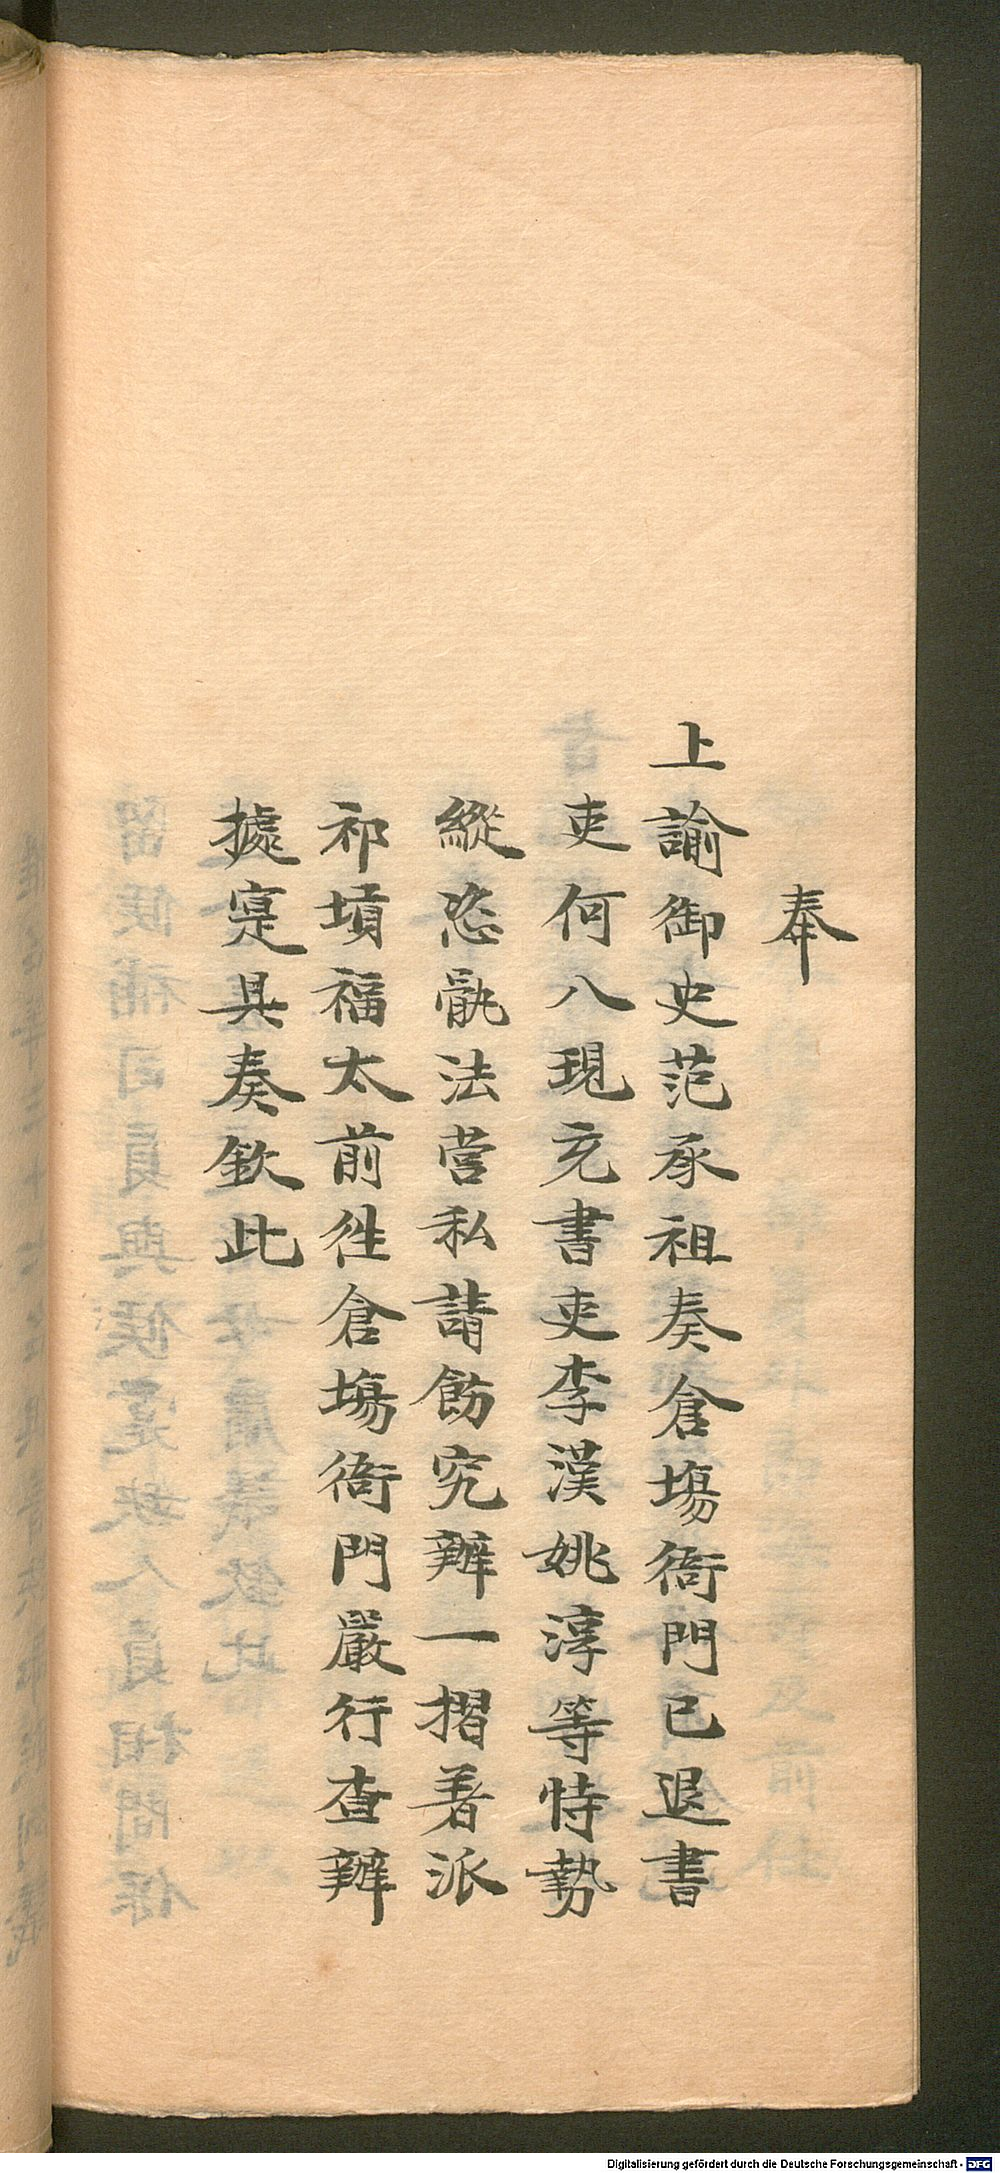 奉
上諭御史范承祖奏倉塲衙門已退書
吏何八現充書吏李漢姚淳等恃勢
縱恣骫法营私請飭究辦一摺着派
祁墳福太前徃倉塲衙門嚴行查辦
據寔具奏欽此
Digitalisierung gefördert durch die Deutsche Forschungsgemeinschaft - DFG